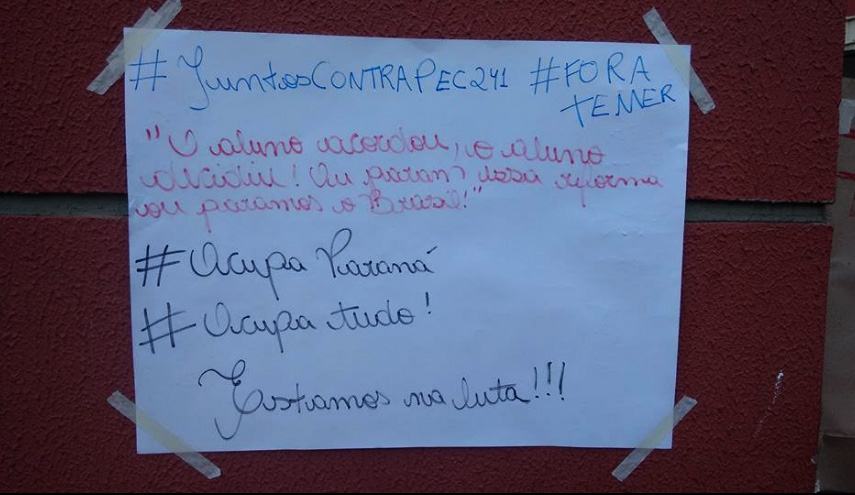 #JuntosCONTRAPEC241 #FORA
TEMER
"O aluno acordou, o aluno
decidiu! Ou param essa reforma
ou paramos o Brasil!"
#Ocupa Paraná
#Ocupa tudo!
Estamos na luta!!!